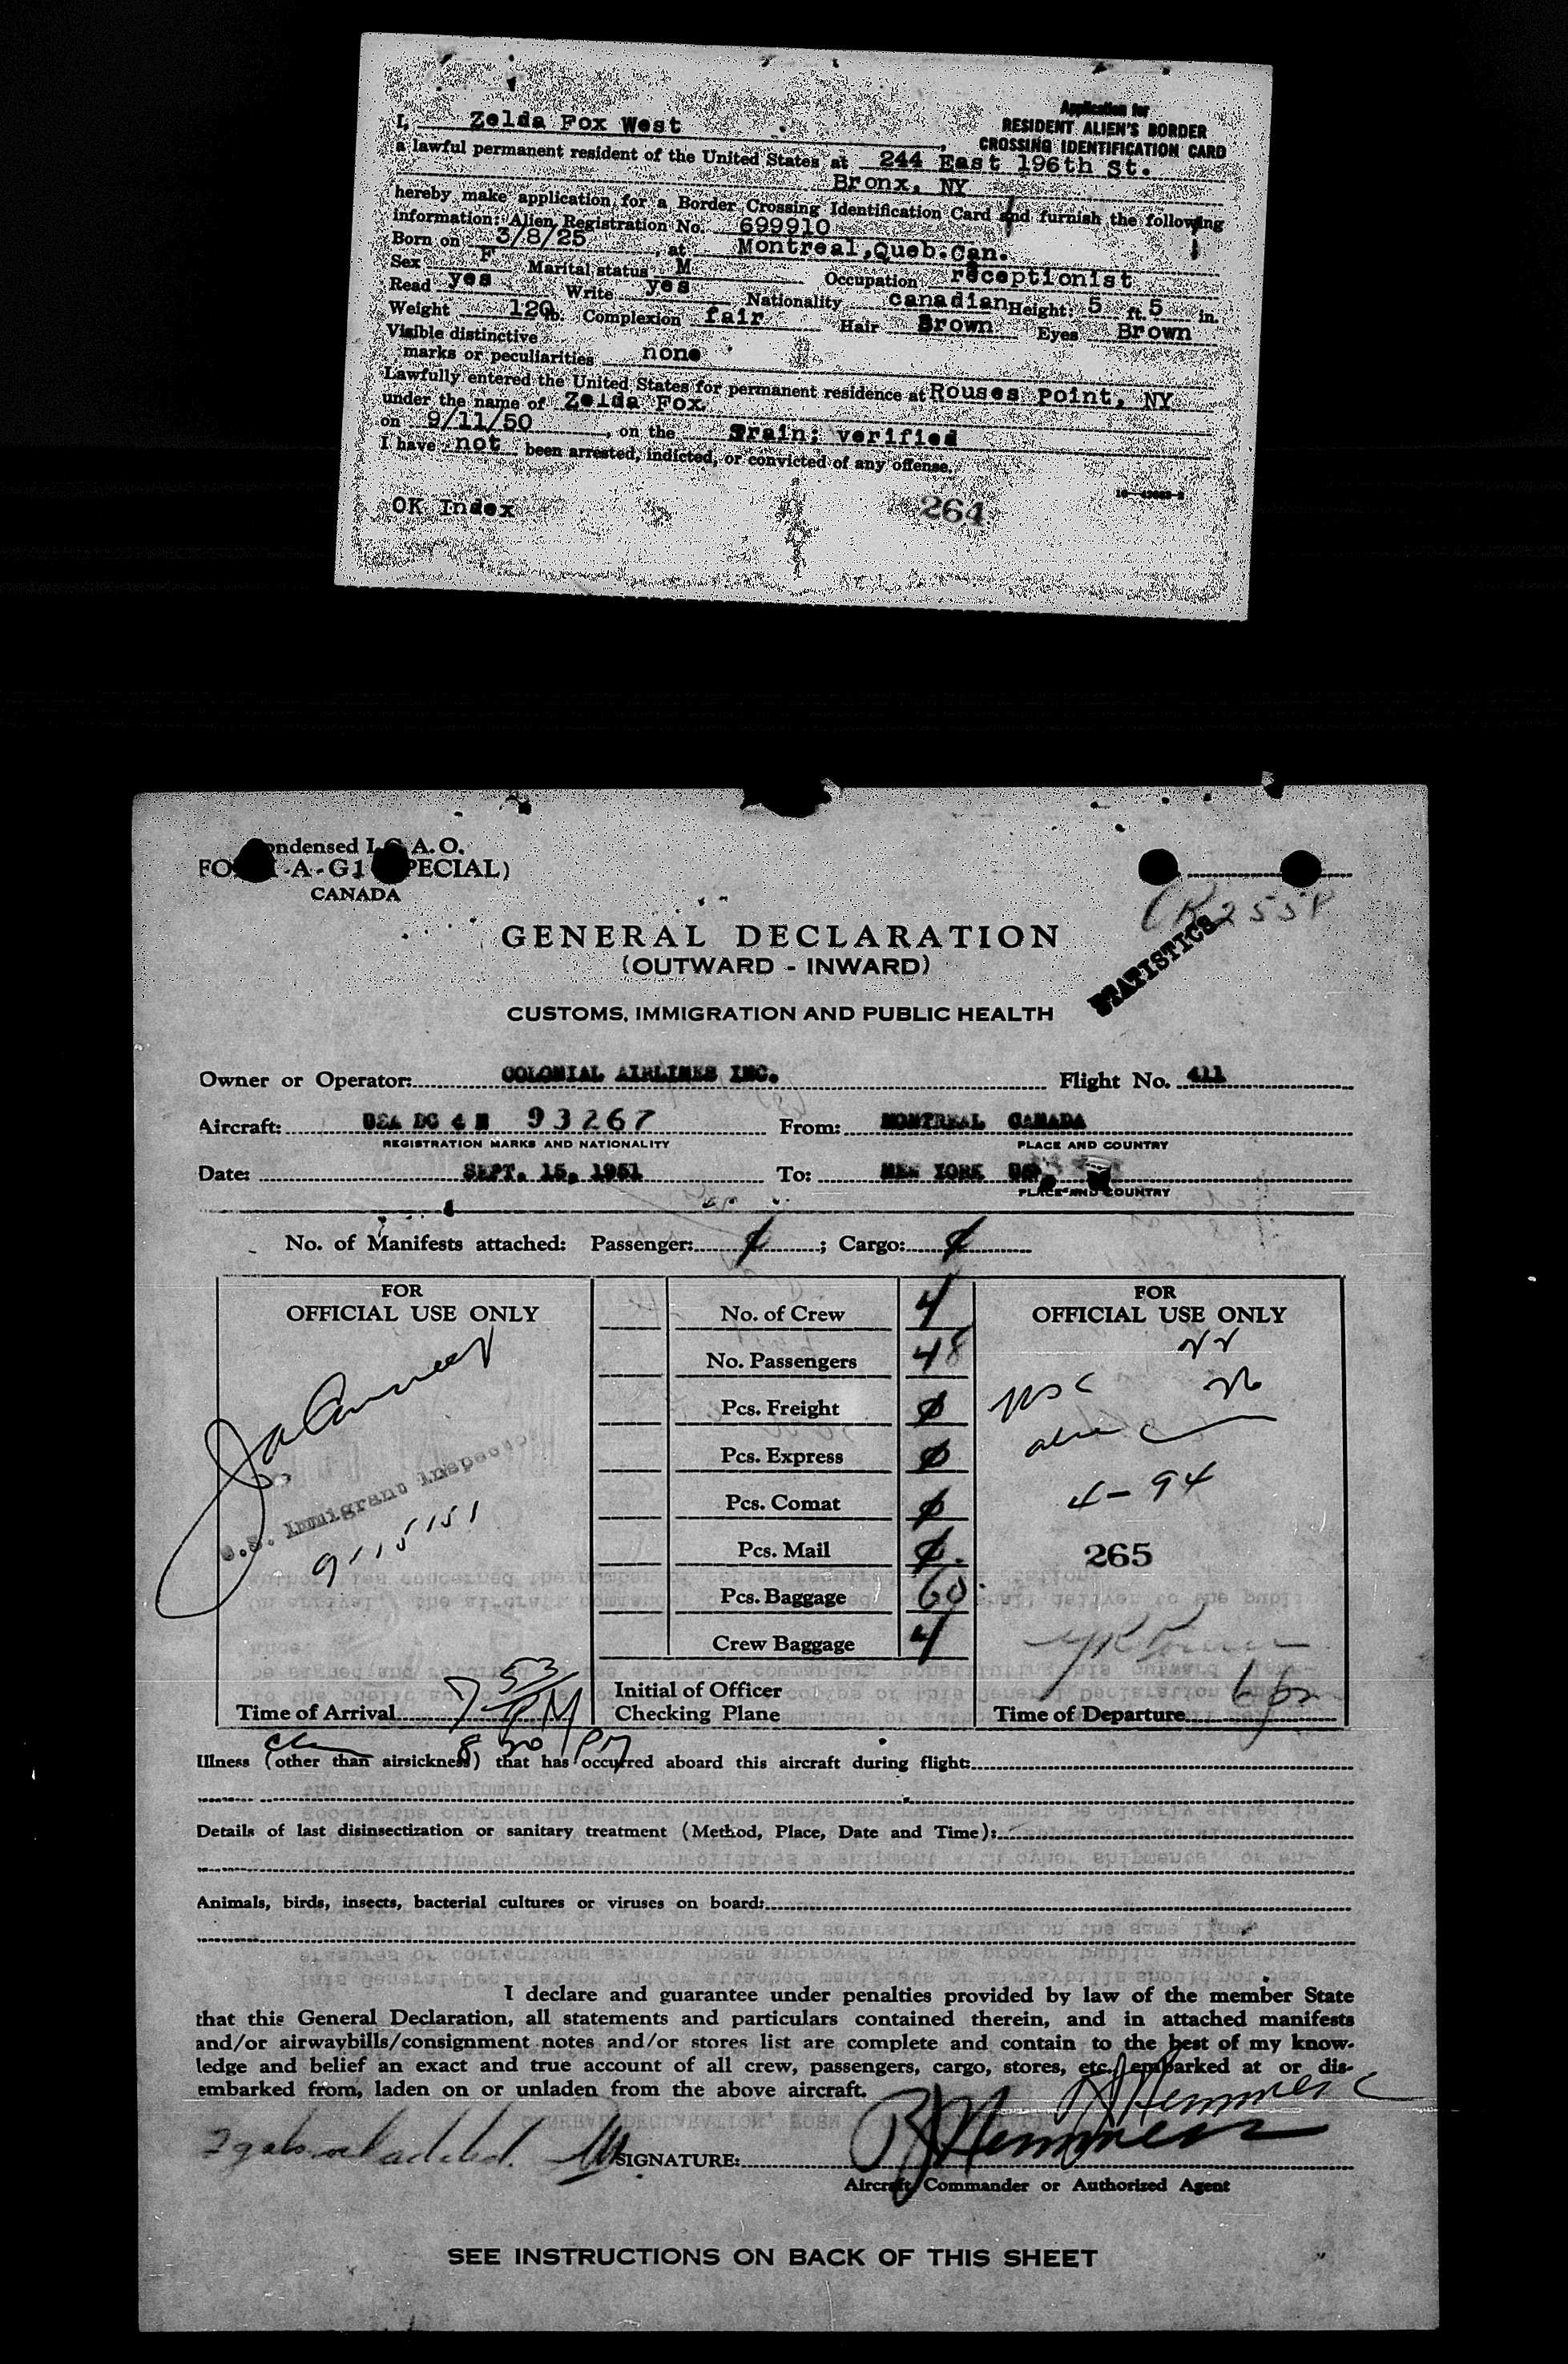 Application for
RESIDENT ALIEN'S BORDER
CROSSING IDENTIFICATION CARD
I, Zelda Fox West,
a lawful permanent resident of the United States at 244 East 196th St.
Bronx, NY
hereby make application for a Border Crossing Identification Card and furnish the following
information: Alien Registration No. 699910
Born on 3/8/25, at Montreal,Queb.Can.
Sex F Marital status M Occupation receptionist
Read yes Write yes Nationality canadian Height: 5 ft. 5 in.
Weight 120 lb. Complexion fair Hair Brown Eyes Brown
Visible distinctive
marks or peculiarities none
Lawfully entered the United States for permanent residence at Rouses Point, NY
under the name of Zelda Fox
on 9/11/50, on the Train; verified
I have not been arrested, indicted, or convicted of any offense.
OK Index 264
Condensed I.C.A.O.
FORM -A-G1 (SPECIAL)
CANADA
GENERAL DECLARATION
(OUTWARD - INWARD)
STATISTICS
CUSTOMS, IMMIGRATION AND PUBLIC HEALTH
Owner or Operator: COLONIAL AIRLINES INC. Flight No. 411
Aircraft: USA DC 4 N 93267 From: MONTREAL CANADA
REGISTRATION MARKS AND NATIONALITY PLACE AND COUNTRY
Date: SEPT. 15, 1951 To: NEW YORK
PLACE AND COUNTRY
No. of Manifests attached: Passenger: ; Cargo:
FOR
OFFICIAL USE ONLY
U.S. Immigrant Inspector
9-15-51
Time of Arrival 7 53 PM
8 30 PM
No. of Crew 4
No. Passengers 48
Pcs. Freight 0
Pcs. Express 0
Pcs. Comat 0
Pcs. Mail 0
Pcs. Baggage 60
Crew Baggage 4
Initial of Officer
Checking Plane
FOR
OFFICIAL USE ONLY
4-94
265
Time of Departure
Illness (other than airsickness) that has occurred aboard this aircraft during flight:
Details of last disinsectization or sanitary treatment (Method, Place, Date and Time):
Animals, birds, insects, bacterial cultures or viruses on board:
I declare and guarantee under penalties provided by law of the member State
that this General Declaration, all statements and particulars contained therein, and in attached manifests
and/or airwaybills/consignment notes and/or stores list are complete and contain to the best of my know-
ledge and belief an exact and true account of all crew, passengers, cargo, stores, etc., embarked at or dis-
embarked from, laden on or unladen from the above aircraft.
SIGNATURE:
Aircraft Commander or Authorized Agent
SEE INSTRUCTIONS ON BACK OF THIS SHEET